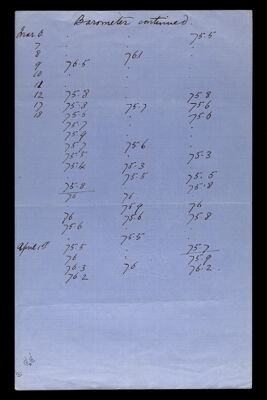 Barometer continued.
Mar 6 . . 75.5
7 . . .
8 . 76.1 .
9 76.5 . .
10 . . .
11 . . .
12 75.8 . 75.8
17 75.8 75.7 75.6
18 75.5 . 75.6
75.7 . .
75.9 . .
75.7 75.6 .
75.5 . 75.3
75.4 75.3 .
. 75.5 75.5
75.8 . 75.8
76 76 .
. 75.9 76
76 75.6 75.8
75.6 . .
. 75.5 .
April 1st 75.5 . 75.7
76 . 75.9
76.3 76 76.2
76.2